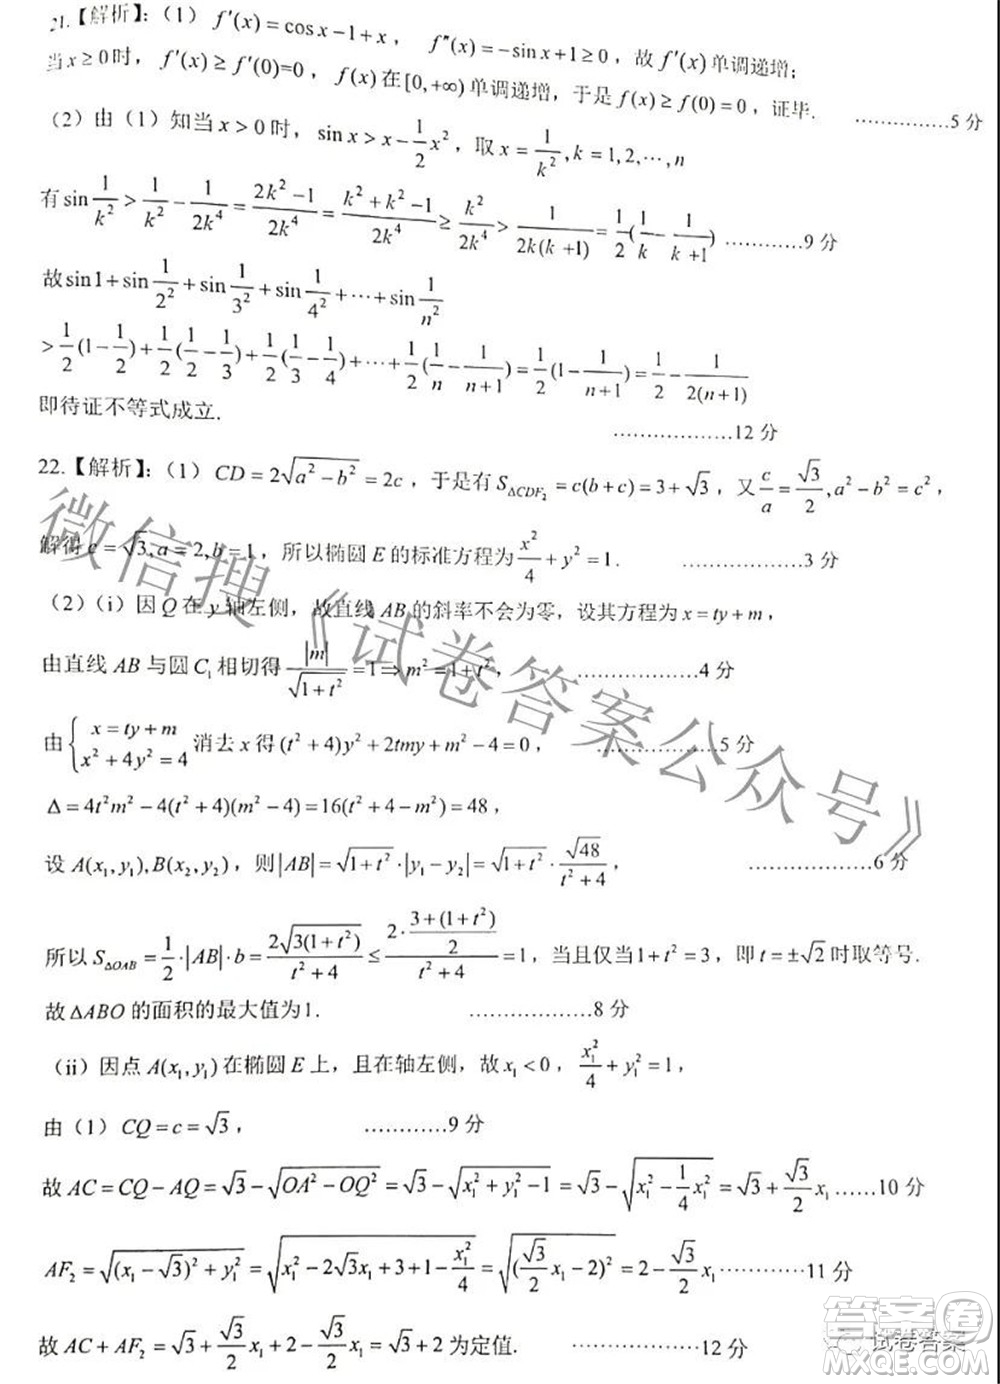 21.【解析】:（1） f′(x)=cosx−1+x， f″(x)=−sinx+1≥0，故 f′(x) 单调递增；
当 x≥0 时，f′(x)≥f′(0)=0，f(x) 在 [0,+∞) 单调递增，于是 f(x)≥f(0)=0，证毕. ……………5 分
（2）由（1）知当 x>0 时，sin x > x − 1/2 x²，取 x = 1/k², k=1,2,⋯,n
有 sin 1/k² > 1/k² − 1/2k⁴ = (2k²−1)/2k⁴ = (k²+k²−1)/2k⁴ ≥ k²/2k⁴ > 1/2k(k+1) = 1/2(1/k − 1/(k+1)) …………9 分
故 sin1+sin 1/2² + sin 1/3² + sin 1/4² + ⋯ + sin 1/n²
> 1/2(1−1/2)+1/2(1/2−1/3)+1/2(1/3−1/4)+⋯+1/2(1/n−1/(n+1))=1/2(1−1/(n+1))=1/2−1/2(n+1)
即待证不等式成立.
………………12 分
22.【解析】:（1） CD=2√(a²−b²)=2c，于是有 S△CDF₂=c(b+c)=3+√3，又 c/a=√3/2, a²−b²=c²，
解得 c=√3, a=2, b=1，所以椭圆 E 的标准方程为 x²/4+y²=1. ……………3 分
（2）（i）因 Q 在 y 轴左侧，故直线 AB 的斜率不会为零，设其方程为 x=ty+m，
由直线 AB 与圆 C₁ 相切得 |m|/√(1+t²)=1⇒m²=1+t²， ……………4 分
由 { x=ty+m
x²+4y²=4 消去 x 得 (t²+4)y²+2tmy+m²−4=0， ……………5 分
Δ=4t²m²−4(t²+4)(m²−4)=16(t²+4−m²)=48，
设 A(x₁,y₁),B(x₂,y₂)，则 |AB|=√(1+t²)·|y₁−y₂|=√(1+t²)·√48/(t²+4)， ………………6 分
所以 S△OAB=1/2·|AB|·b=2√(3(1+t²))/(t²+4)≤(2·(3+(1+t²))/2)/(t²+4)=1，当且仅当 1+t²=3，即 t=±√2 时取等号.
故 ΔABO 的面积的最大值为1. ………………8 分
（ii）因点 A(x₁,y₁) 在椭圆 E 上，且在轴左侧，故 x₁<0，x₁²/4+y₁²=1，
由（1）CQ=c=√3， …………9 分
故 AC=CQ−AQ=√3−√(OA²−OQ²)=√3−√(x₁²+y₁²−1)=√3−√(x₁²−1/4x₁²)=√3+√3/2 x₁ ……10 分
AF₂=√((x₁−√3)²+y₁²)=√(x₁²−2√3x₁+3+1−x₁²/4)=√((√3/2 x₁−2)²)=2−√3/2 x₁ …………11 分
故 AC+AF₂=√3+√3/2 x₁+2−√3/2 x₁=√3+2 为定值. ………………12 分
微信搜《试卷答案公众号》
答案圈
试卷答案
MXQE.COM